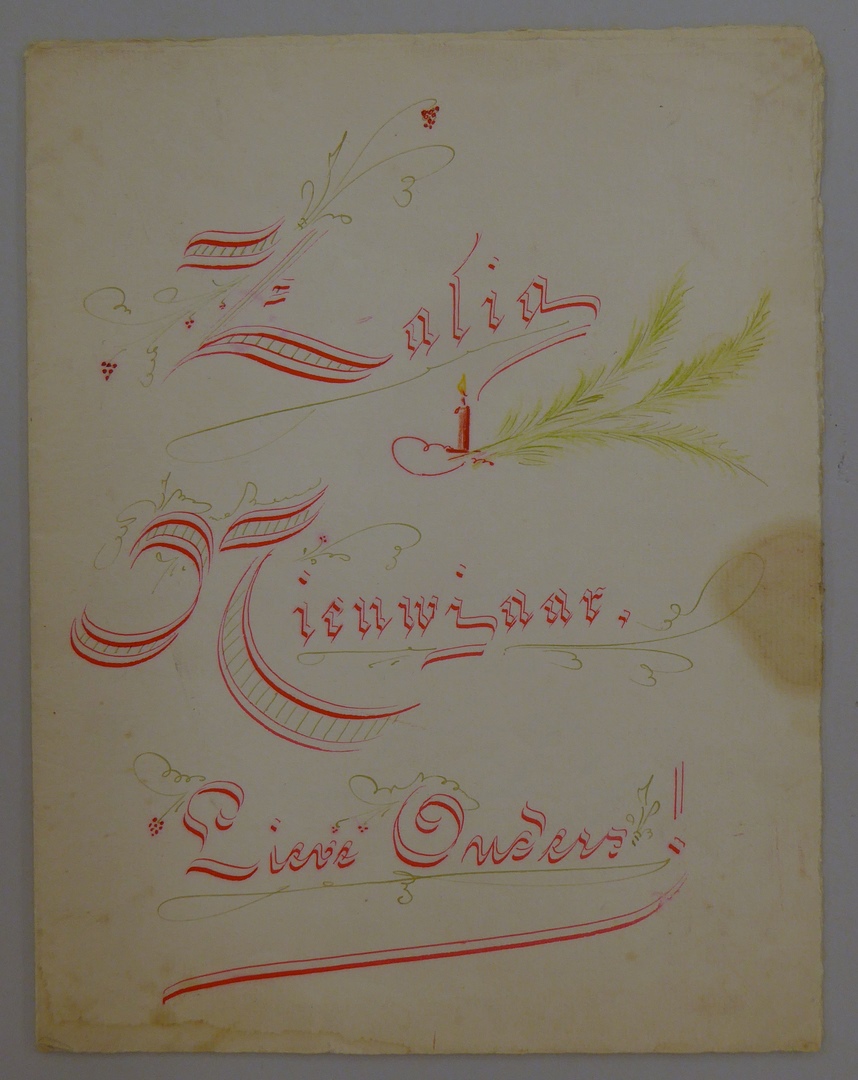 Zalig
Nieuwjaar.
Lieve Ouders!